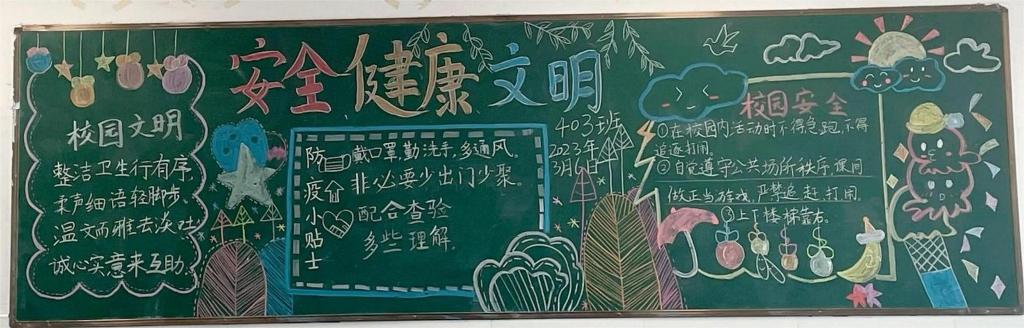 安全健康文明
校园文明
整洁卫生行有序,
柔声细语轻脚步、
温文而雅去谈吐
诚心实意来互助.
防疫小贴士
戴口罩,勤洗手,多通风。
非必要少出门少聚。
配合查验
多些理解.
403班
2023年
3月6日
校园安全
①在校园内活动时不得急跑,不得
追逐打闹.
②自觉遵守公共场所秩序,课间
做正当游戏,严禁追赶打闹.
③上下楼梯靠右。